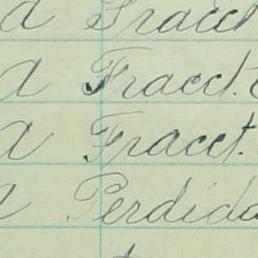 a Fracct
a Fracct.
a Fracct.
a Perdida